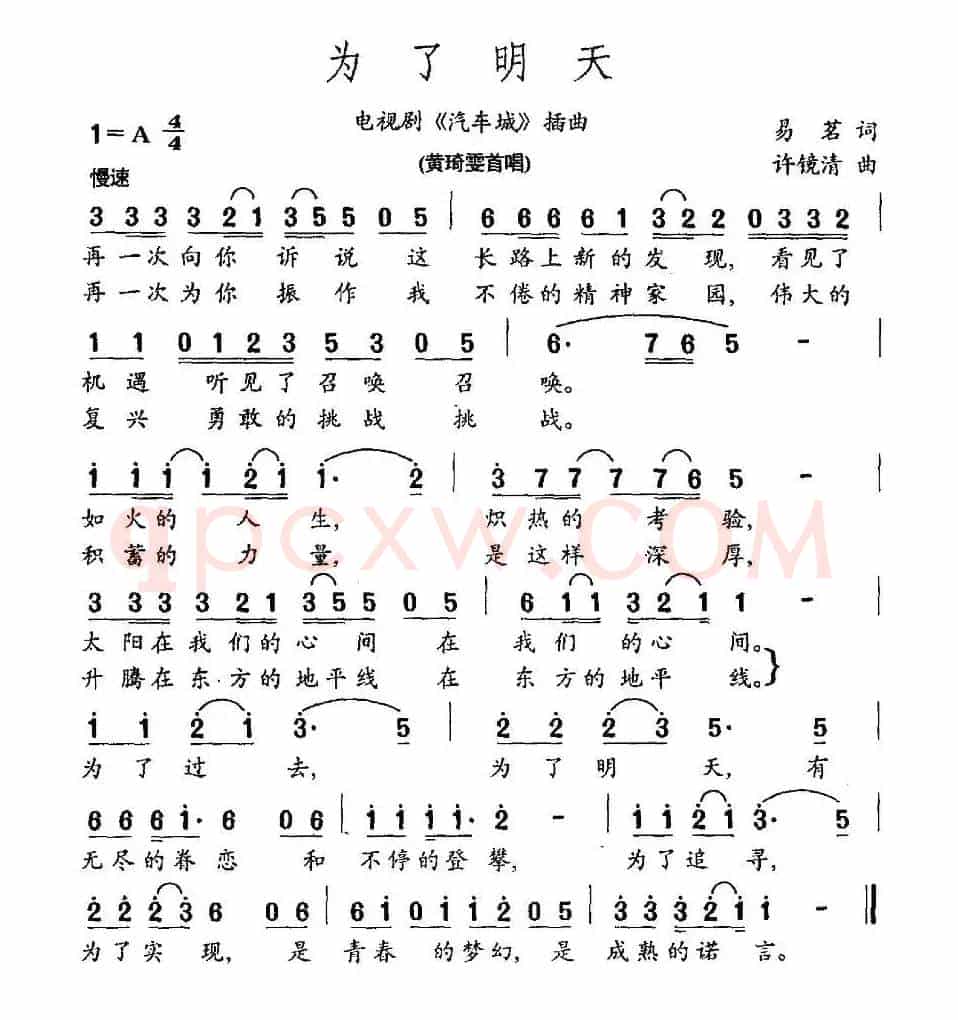 为了明天
1=A 4/4
电视剧《汽车城》插曲
易茗 词
慢速
(黄琦雯首唱)
许镜清 曲
3 3 3 3 2 1 3 5 5 0 5 | 6 6 6 6 1 3 2 2 0 3 3 2 |
再一次向你 诉 说 这 长路上新的发 现, 看见了
再一次为你 振 作 我 不倦的精神家 园, 伟大的
1 1 0 1 2 3 5 3 0 5 | 6· 7 6 5 - |
机遇 听见了召唤 召 唤。
复兴 勇敢的挑战 挑 战。
i i i i 2 i i· 2 | 3 7 7 7 7 6 5 - |
如火的 人 生, 炽热的 考 验,
积蓄的 力 量, 是这样 深 厚,
qpcxw.COM
3 3 3 3 2 1 3 5 5 0 5 | 6 1 1 3 2 1 1 - |
太阳在我们的心 间 在 我们 的心 间。
升腾在东·方的地平线 在 东方的地平 线。}
i i 2 i 3· 5 | 2 2 2 3 5· 5 |
为了过 去, 为了明 天, 有
6 6 6 i· 6 0 6 | i i i i· 2 - | i i 2 i 3· 5 |
无尽的眷恋 和 不停的登攀, 为了追 寻,
2 2 2 3 6 0 6 | 6 i 0 i i 2 0 5 | 3 3 3 2 i i - ‖
为了实 现, 是 青春 的梦幻, 是 成熟的诺 言。